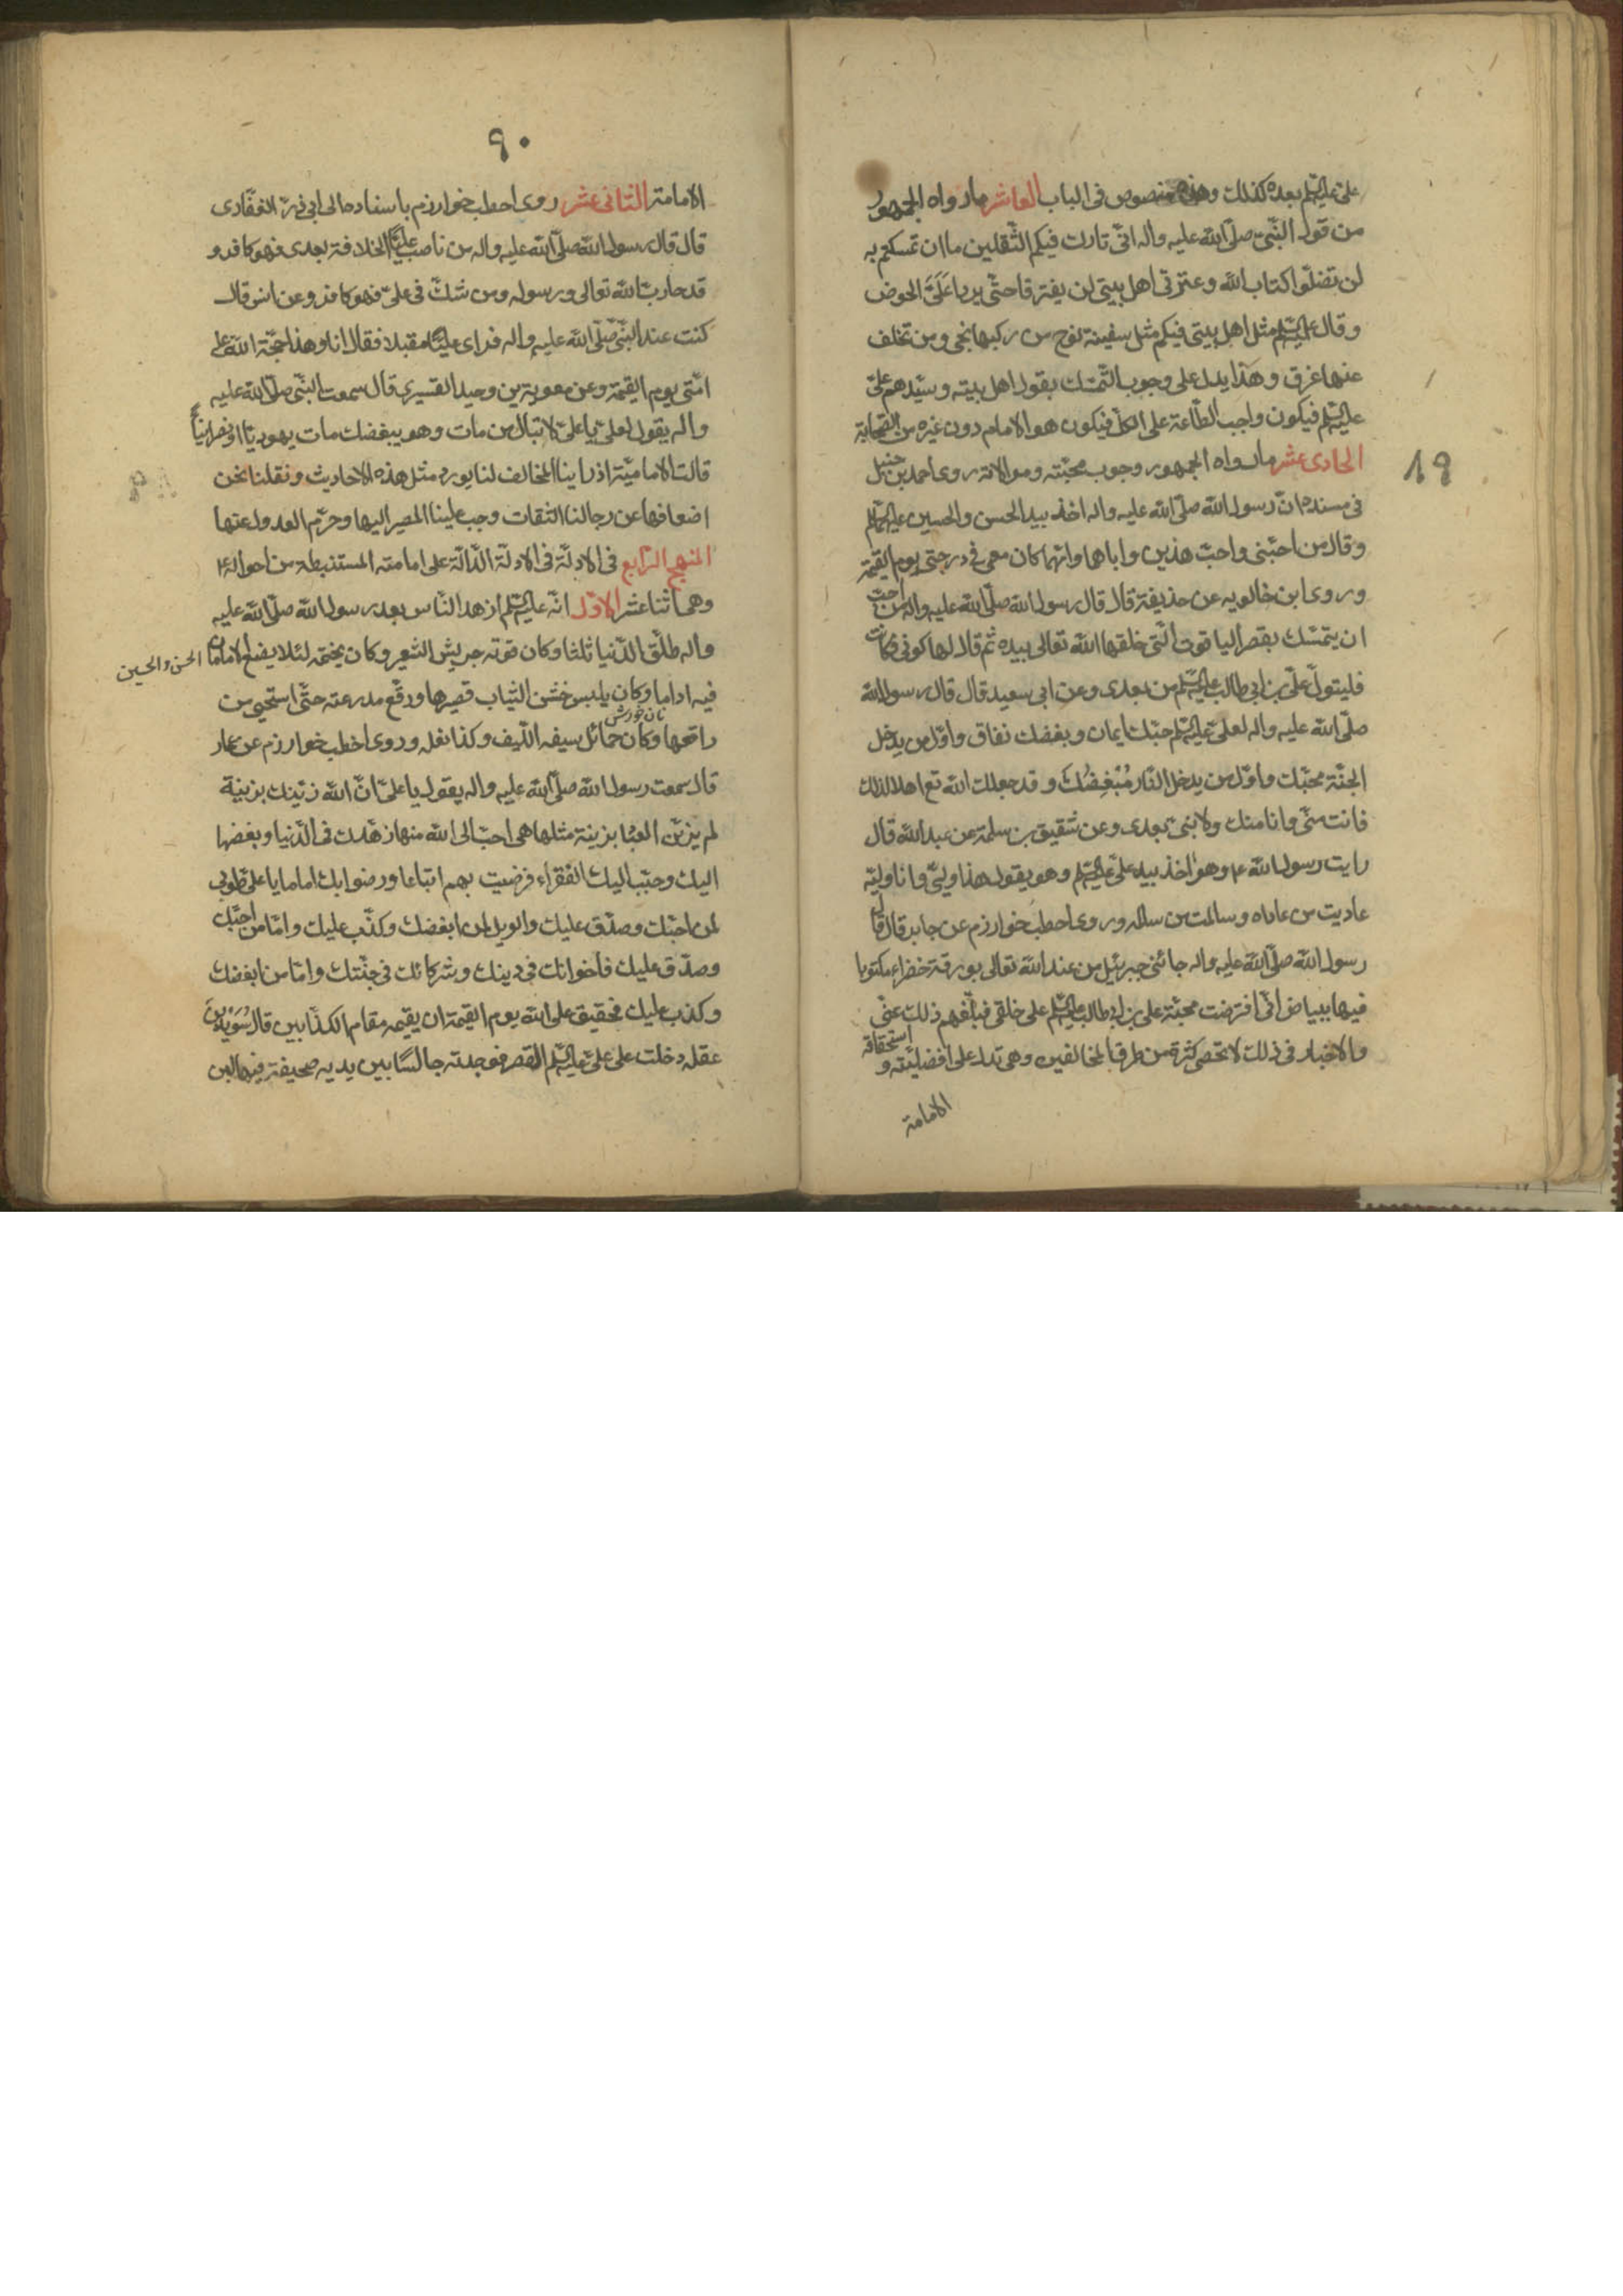 على عليه السلم بعده كذلك وهذه نصوص فى الباب العاشر مارواه الجمهور
من قول النبّى صلّى الله عليه واله انّى تارك فيكم الثّقلين ما ان تمسكتم به
لن تضلّوا كتاب الله وعترتى اهل بيتى لن يفترقا حتّى يردا عَلَىَّ الحوض
وقال عليه السلم مثل اهل بيتى فيكم مثل سفينة نوح من ركبها نجى ومن تخلف
عنها غرق وهذا يدل على وجوب التّمسّك بقول اهل بيته وسيّدهم علىّ
عليه السلم فيكون واجب الطّاعة على الكلّ فيكون هو الامام دون غيره من الصّحابة
الحادى عشر مارواه الجمهور وجوب محبّته وموالاته روى احمد بن حنبل
١٩
فى مسنده انّ رسول الله صلّى الله عليه واله اخذ بيد الحسن والحسين عليهما السلم
وقال من احبّنى واحبّ هذين واباهما وامّهما كان معى فى درجتى يوم القيمة
وروى ابن خالويه عن حذيفة قال قال رسول الله صلّى الله عليه واله من احبّ
ان يتمسّك بقصر الياقوت الّتى خلقها الله تعالى بيده ثم قال لها كونى فكانت
فليتولّ علىّ بن ابى طالب عليه السلم من بعدى وعن ابى سعيد قال قال رسول الله
صلّى الله عليه واله لعلىّ عليه السلم حبّك ايمان وبغضك نفاق واوّل من يدخل
الجنّة محبّك واوّل من يدخل النّار مُبْغِضُكَ وقد جعلك الله تع اهلا لذلك
فانت منّى وانا منك ولا نبىّ بعدى وعن شقيق بن سلمة عن عبد الله قال
رايت رسول الله ص وهو اخذ بيد علىّ عليه السلم وهو يقول هذا وليّى وانا وليّه
عاديت من عاداه وسالمت من سالمه وروى اخطب خوارزم عن جابر قال قال
رسول الله صلّى الله عليه واله جائنى جبرئيل من عند الله تعالى بورقة خضراء مكتوبا
فيها ببياض انّى افترضت محبّة على بن ابى طالب عليه السلم على خلقى فبلّغهم ذلك عنّى
والاخبار فى ذلك لا تحصى كثرة من طرق المخالفين وهى تدل على افضليّته و استحقاقه
الامامة
٩٠
الامامة الثّانى عشر روى اخطب خوارزم باسناده الى ابى ذرّ الغفّارى
قال قال رسول الله صلّى الله عليه واله من ناصب عليّا الخلافة بعدى فهو كافر و
قد حارب الله تعالى ورسوله ومن شكّ فى علىّ فهو كافر وعن انس قال
كنت عند النبّى صلّى الله عليه واله فراى عليّا مقبلا فقال انا وهذا حجّة الله على
امّتى يوم القيمة وعن معوية بن وحيد القسيرى قال سمعت النبّى صلّى الله عليه
واله يقول لعلىّ يا علىّ لا تبال من مات وهو يبغضك مات يهوديّا او نصرانيّا
قالت الاماميّة اذ راينا المخالف لنا يورد مثل هذه الاحاديث ونقلنا نحن
اضعافها عن رجالنا الثّقات وجب علينا المصير اليها وحرّم العدول عنها
المنهج الرّابع فى الادلّة فى الادلّة الدّالّة على امامته المستنبطة من احواله
وهى اثنا عشر الاوّل انّه عليه السلم ازهد النّاس بعد رسول الله صلّى الله عليه
واله طلّق الدّنيا ثلثا وكان قوته جريش الشّعير وكان يختمه لئلا يضع الامامان
الحسن والحسين
فيه اداما وكان يلبس خشن الثّياب قصيرها ورقّع مدرعته حتّى استحيى من
نان خورش
راقعها وكان حمائل سيفه اللّيف وكذا نعله وروى اخطب خوارزم عن عمار
قال سمعت رسول الله صلّى الله عليه واله يقول يا علىّ انّ الله زيّنك بزينة
لم يزيّن العباد بزينة مثلها هى احبّ الى الله منها زهّدك فى الدّنيا وبغضها
اليك وحبّب اليك الفقراء فرضيت بهم اتباعا ورضوا بك اماما يا على طوبى
لمن احبّك وصدّق عليك والويل لمن ابغضك وكذّب عليك وامّا من احبّك
وصدّق عليك فاخوانك فى دينك وشركائك فى جنّتك وامّا من ابغضك
وكذب عليك فحقيق على الله يوم القيمة ان يقيمه مقام الكذّابين قال سُوَيْد بن
عقله دخلت على علىّ عليه السلم القصر فوجدته جالسًا بين يديه صحيفة فيها لبن